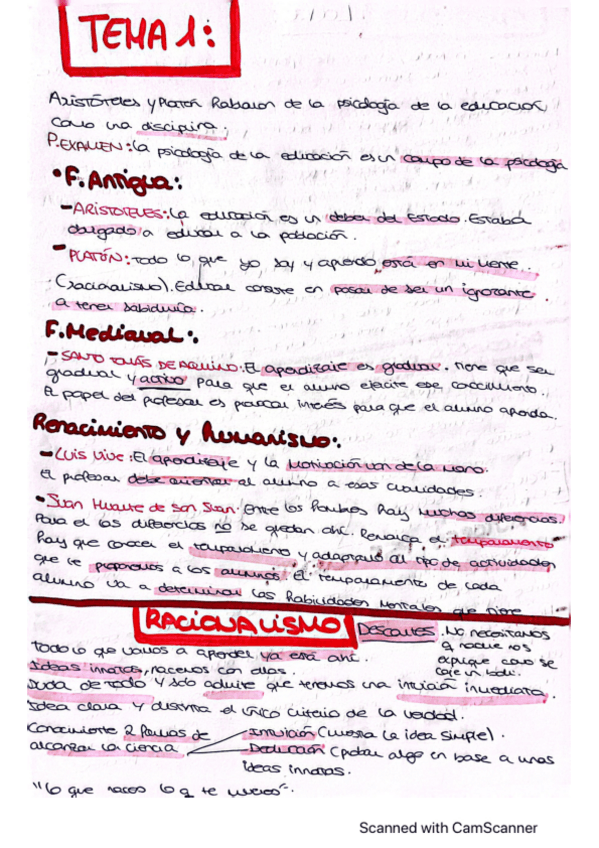 TEMA 1:
Aristóteles y Platón hablaron de la psicología de la educación,
como una disciplina.
P.EXAMEN: la psicología de la educación es un campo de la psicología
• F. Antigua:
- ARISTÓTELES: La educación es un deber del Estado. Estaba
obligado a educar a la población.
- PLATÓN: todo lo que yo soy y aprendo está en mi mente
(racionalismo). Educar consiste en pasar de ser un ignorante
a tener sabiduría.
F. Medieval:
- SANTO TOMÁS DE AQUINO: El aprendizaje es gradual. Tiene que ser
gradual y activo para que el alumno ejercite ese conocimiento.
El papel del profesor es provocar interés para que el alumno aprenda.
Renacimiento y Humanismo:
- Luis Vive: El aprendizaje y la motivación van de la mano.
El profesor debe orientar al alumno a esas cualidades.
• Juan Huarte de San Juan: Entre los hombres hay muchas diferencias.
Para él las diferencias no se quedan ahí. Remarca el temperamento
Hay que conocer el temperamento y adaptarlo al tipo de actividades
que le proponemos a los alumnos. El temperamento de cada
alumno va a determinar las habilidades mentales que tiene
RACIONALISMO
Descartes. No necesitamos
q nadie nos
explique cómo se
todo lo que vamos a aprender ya está ahí.
Ideas innatas, nacemos con ellas.
Duda de todo y solo admite que tenemos una intuición inmediata.
Idea clara y distinta el único criterio de la verdad.
Conocimiento 2 formas de
alcanzar la ciencia
Intuición (nuestra la idea simple).
Deducción (probar algo en base a unas
ideas innatas.
"lo que naces lo q te mueres".
Scanned with CamScanner